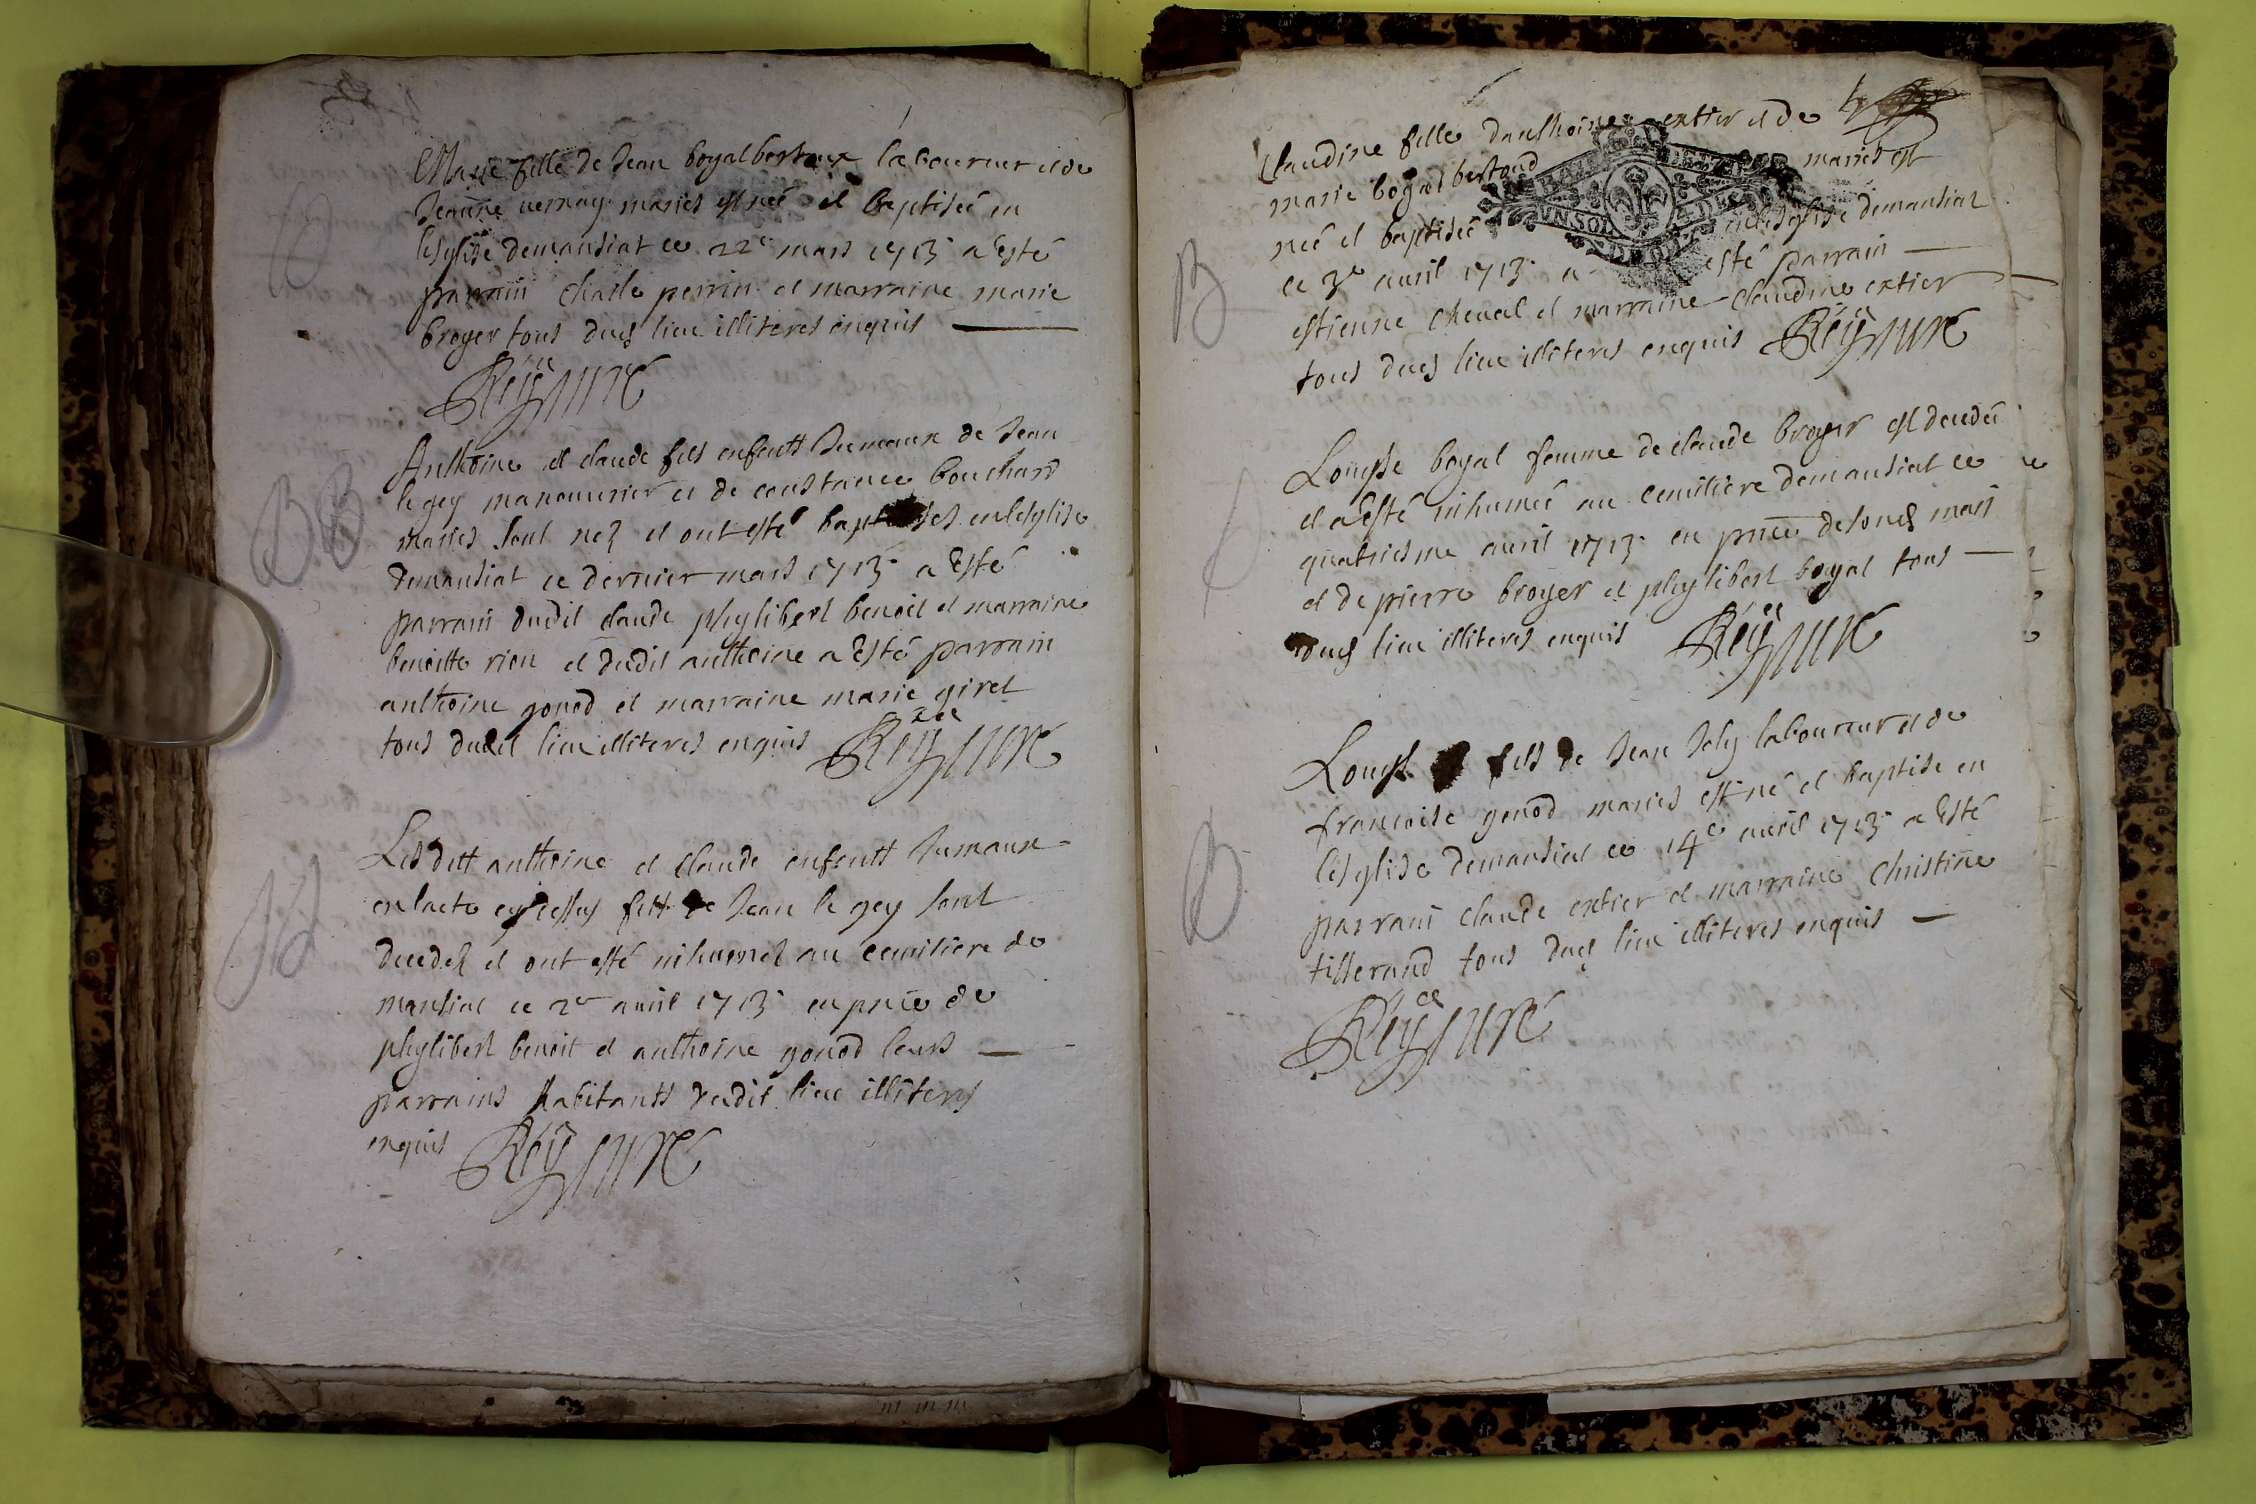 Marie fille de Jean boyal bertoux laboureur et de
Jeanne vernay mariés est neé et baptiseé en
lesglise demansiat ce 22e mars 1713 a esté
parrain Charle perrin et marraine marie
broyer tous duds lieu illiteres enquis
Reÿ curé
B B
Anthoine et claude fils enfants Jumaux de Jean
le gey manouvrier et de constance bouchard
mariés sont nez et ont esté baptises en lesglise
demansiat ce dernier mars 1713 a Esté
parrain dudit claude phylibert benoit et marraine
benoitte rion et dudit anthoine a Esté parrain
anthoine gonod et marraine marie giret
tous dudit lieu illiteres enquis Reÿ curé
Lesditt anthoine et Claude enfantt Jumaux
en lacte cy dessus fitt de Jean le gey sont
decedez et ont esté inhumez au cemitiere de
mansiat ce 2e avril 1713 en pnce de
phylibert benoit et anthoine gonod leurs
parrains habitants dudit lieu illiteres
enquis Reÿ curé
4
Claudine fille danthoine extier et de
marie boyal bertoud mariés est
neé et baptiseé en lesglise demansiat
UN SOL
B
ce 3e avril 1713 a esté parrain
estienne cheval et marraine claudine extier
tous duds lieu illiteres enquis Reÿ curé
Louyse boyal femme de claude broyer est decedeé
et a esté inhumeé au cemitiere demansiat ce
quatriesme avril 1713 en pnce de sond mari
et de pierre broyer et phylibert boyal tous
duds lieu illiteres enquis Reÿ curé
Louys fils de Jean Joly laboureur et de
francoise gonod mariés est né et baptise en
B
lesglise demansiat ce 14e avril 1713 a Esté
parrain claude extier et marraine Christine
tisserand tous duds lieu illiteres enquis
Reÿ curé